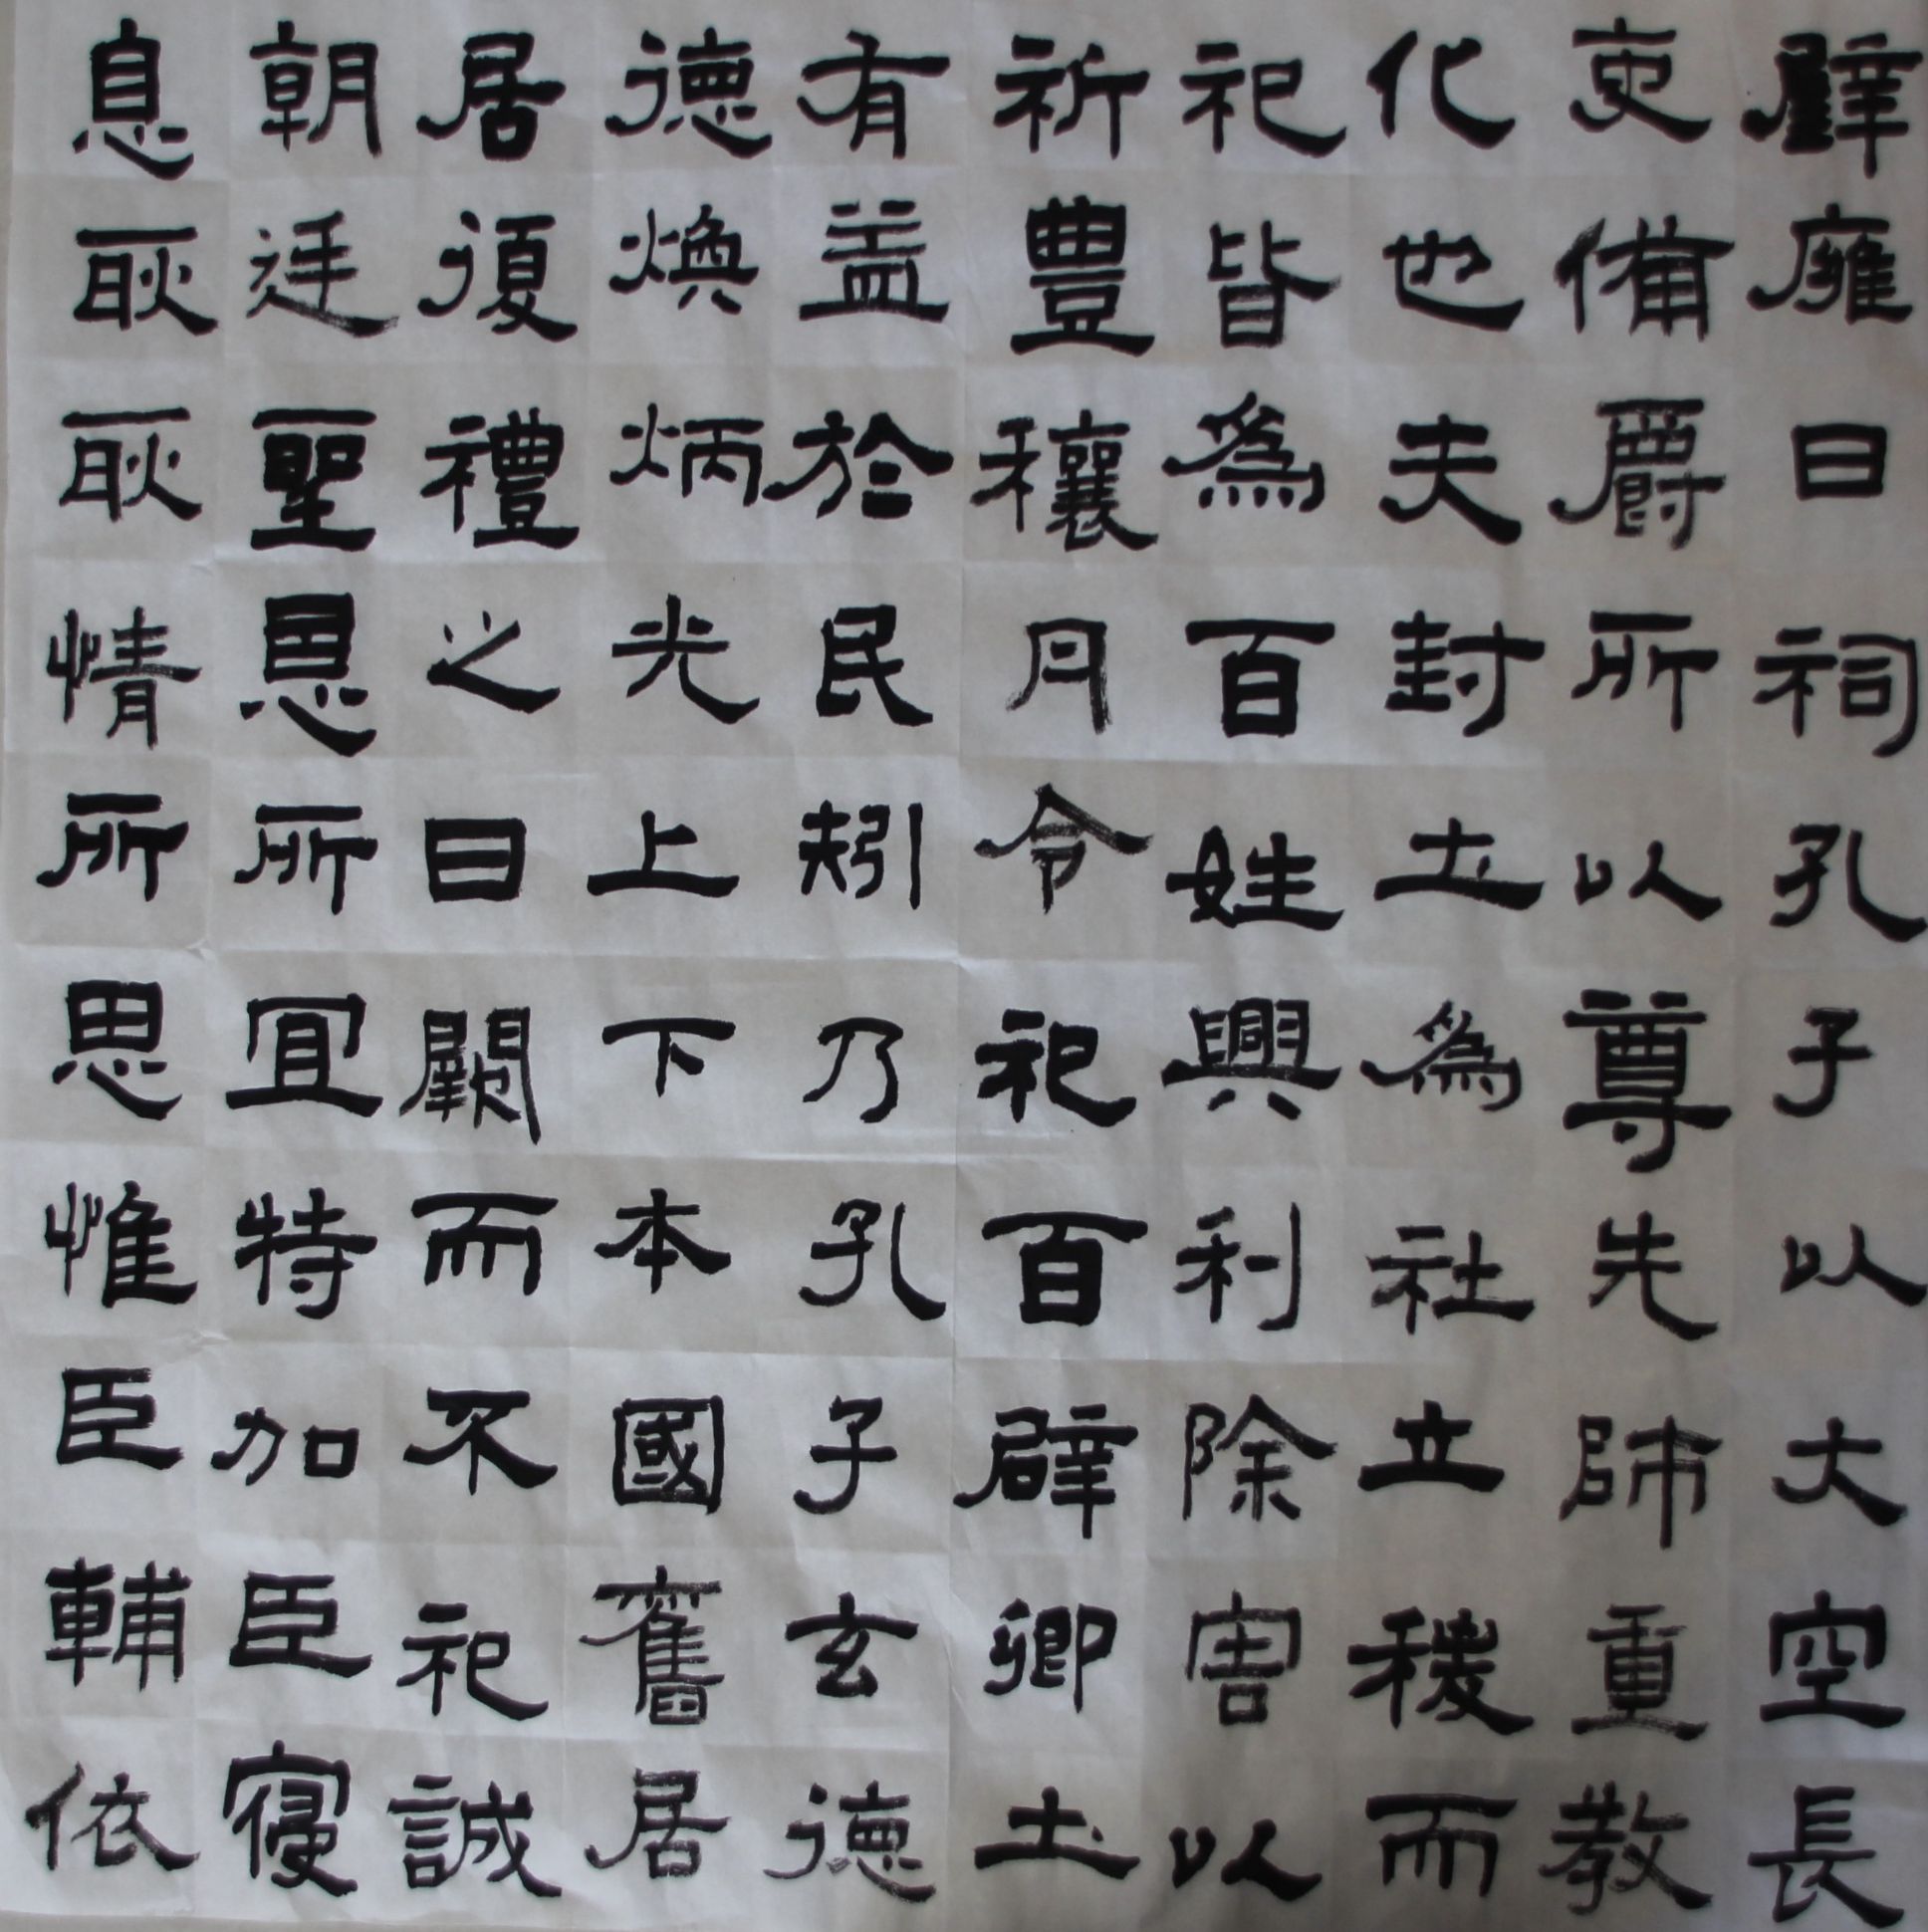 辟廱日祠孔子以大空長
吏備爵所以尊先師重教
化也夫封土為社立稷而
祀皆為百姓興利除害以
祈豊穰月令祀百辟卿士
有益於民矧乃孔子玄德
德煥炳光上下本國舊居
居復禮之日闕而不祀誠
朝廷聖恩所宜特加臣寑
息耿耿情所思惟臣輔依